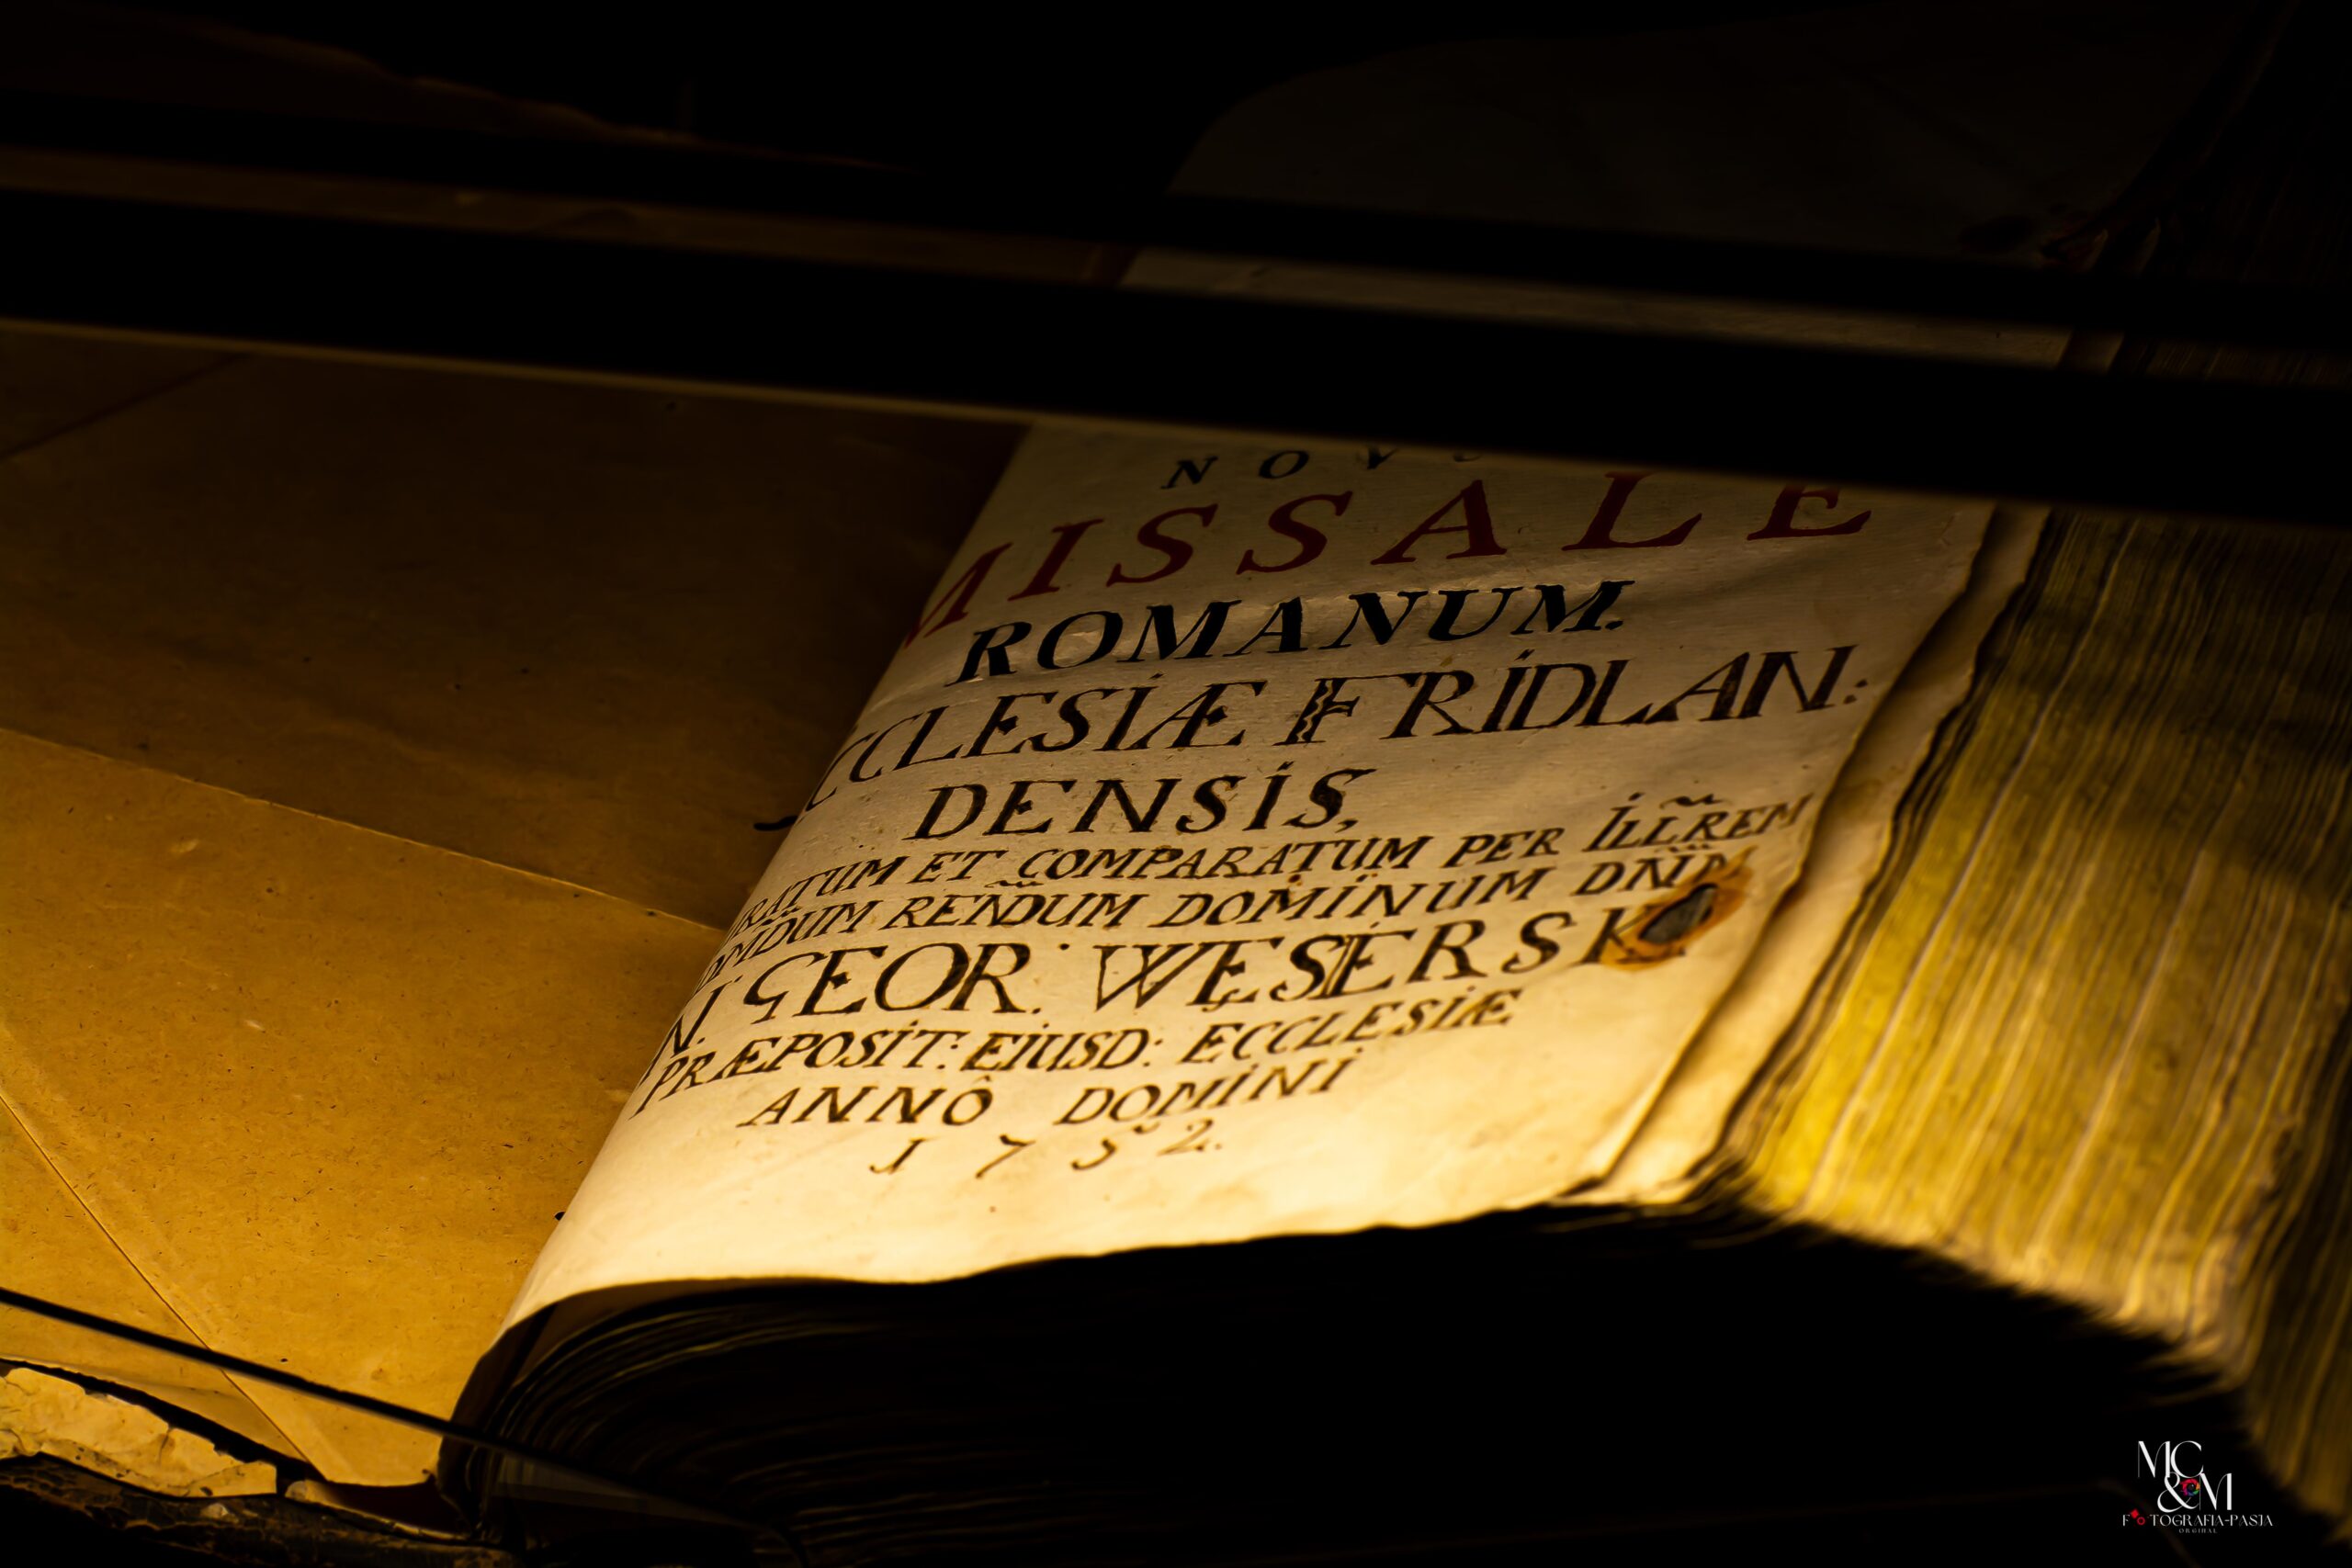 MISSALE
ROMANUM.
ECCLESIÆ FRIDLAN:
DENSIS,
ET COMPARATUM PER ILLR̃EM
REÑDUM DOMINUM DNN̄
N. GEOR: WĘSERSK
PRÆPOSIT: EIUSD: ECCLESIÆ
ANNÔ DOMINI
1752.
MC
&M
FOTOGRAFIA-PASJA